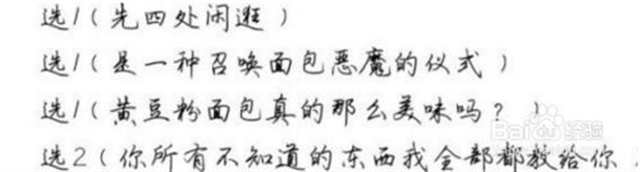 选1(先四处闲逛)
选1(是一种召唤面包恶魔的仪式)
选1(黄豆粉面包真的那么美味吗?)
选2(你所有不知道的东西我全部都教给你
Baidu经验